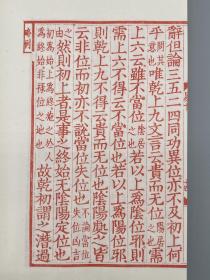 辭但論三五二四同功異位亦不及初上何
乎唯乾上九文言云貴而无位需
上六云雖不當位陰居之若以上爲陰位邪則
需上六不得云不當位也若以上爲陽位邪
則乾上九不得云貴而无位也陰陽處之皆
云非位而初亦不說當位失位也論當位失位吉凶
之由然則初上者是事之終始无陰陽定位
也初爲始上爲終施之於人爲終始非祿位之地也故乾初謂之潛過
略例